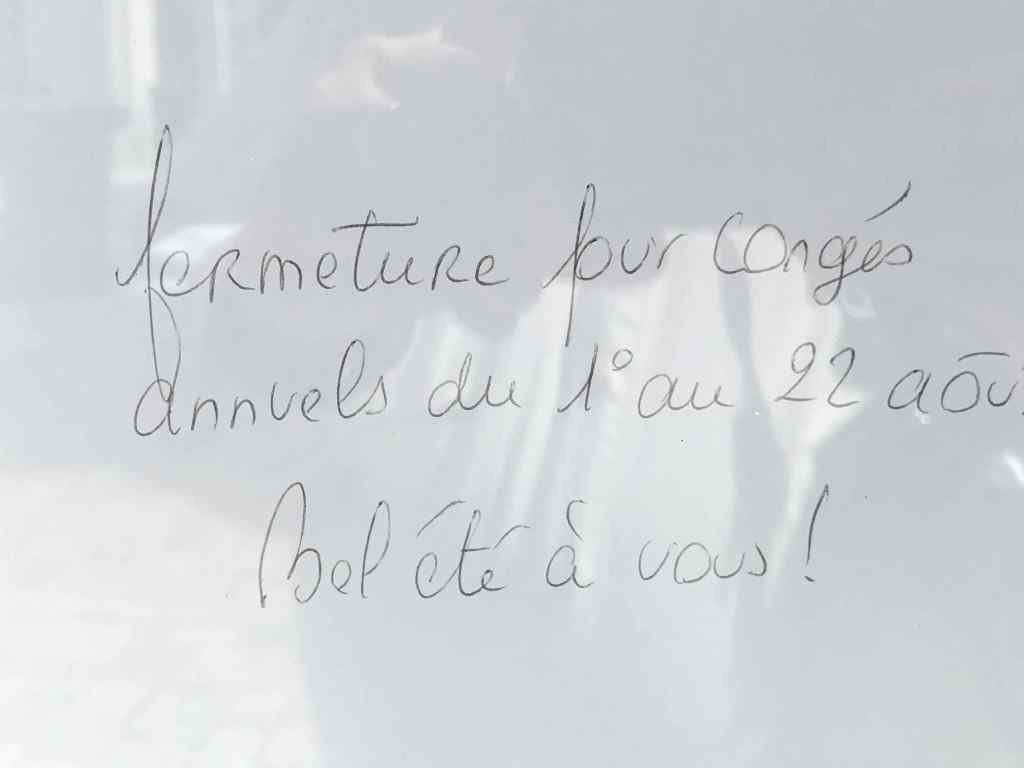 fermeture pour congés
annuels du 1° au 22 aoû
Bel été à vous !